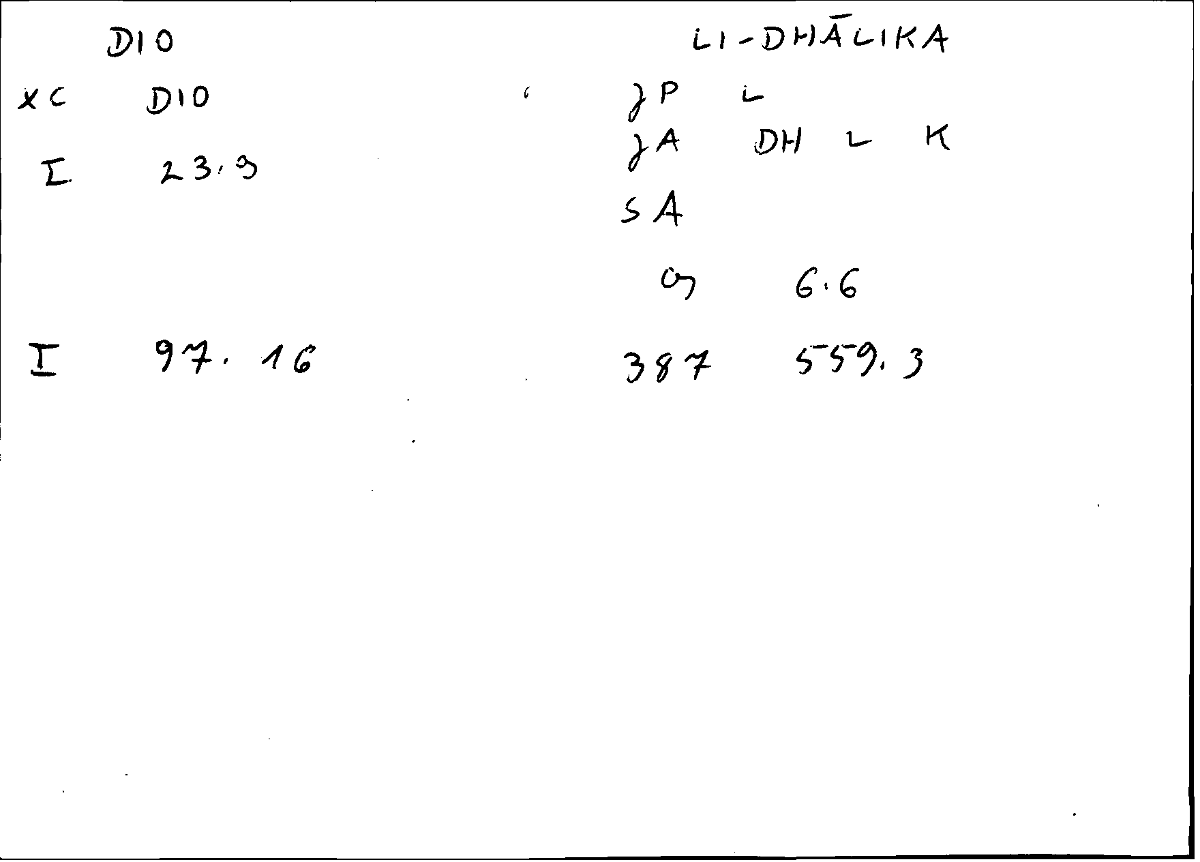 DIO LI-DHĀLIKA
XC DIO JP L
JA DH L K
I 23.9
SA
G 6.6
I 97.16 387 559.3